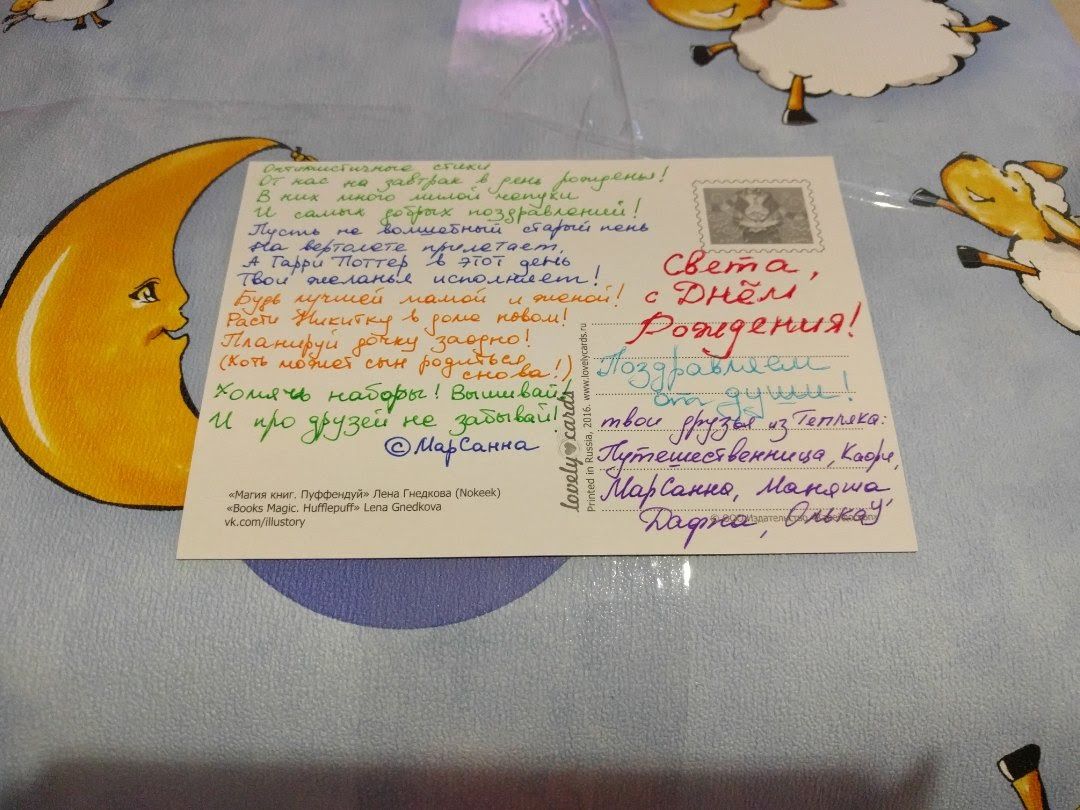 Оптимистичные стихи
От нас на завтрак в день рожденья!
В них много милой чепухи
И самых добрых поздравлений!
Пусть не волшебный старый пень
На вертолете прилетает,
А Гарри Поттер в этот день
Твои желанья исполняет!
Будь лучшей мамой и женой!
Расти Никитку в доме новом!
Планируй дочку заодно!
(Хоть может сын родиться
снова!)
Хомячь наборы! Вышивай!
И про друзей не забывай!
© МарСанна
«Магия книг. Пуффендуй» Лена Гнедкова (Nokeek)
«Books Magic. Hufflepuff» Lena Gnedkova
vk.com/illustory
lovely cards
Printed in Russia, 2016. www.lovelycards.ru
Света,
с Днём
Рождения!
Поздравляем
от души!
твои друзья из Тепляка:
Путешественница, Каоре,
МарСанна, Маняша
Дафна, Олькаў
© ООО Издательство